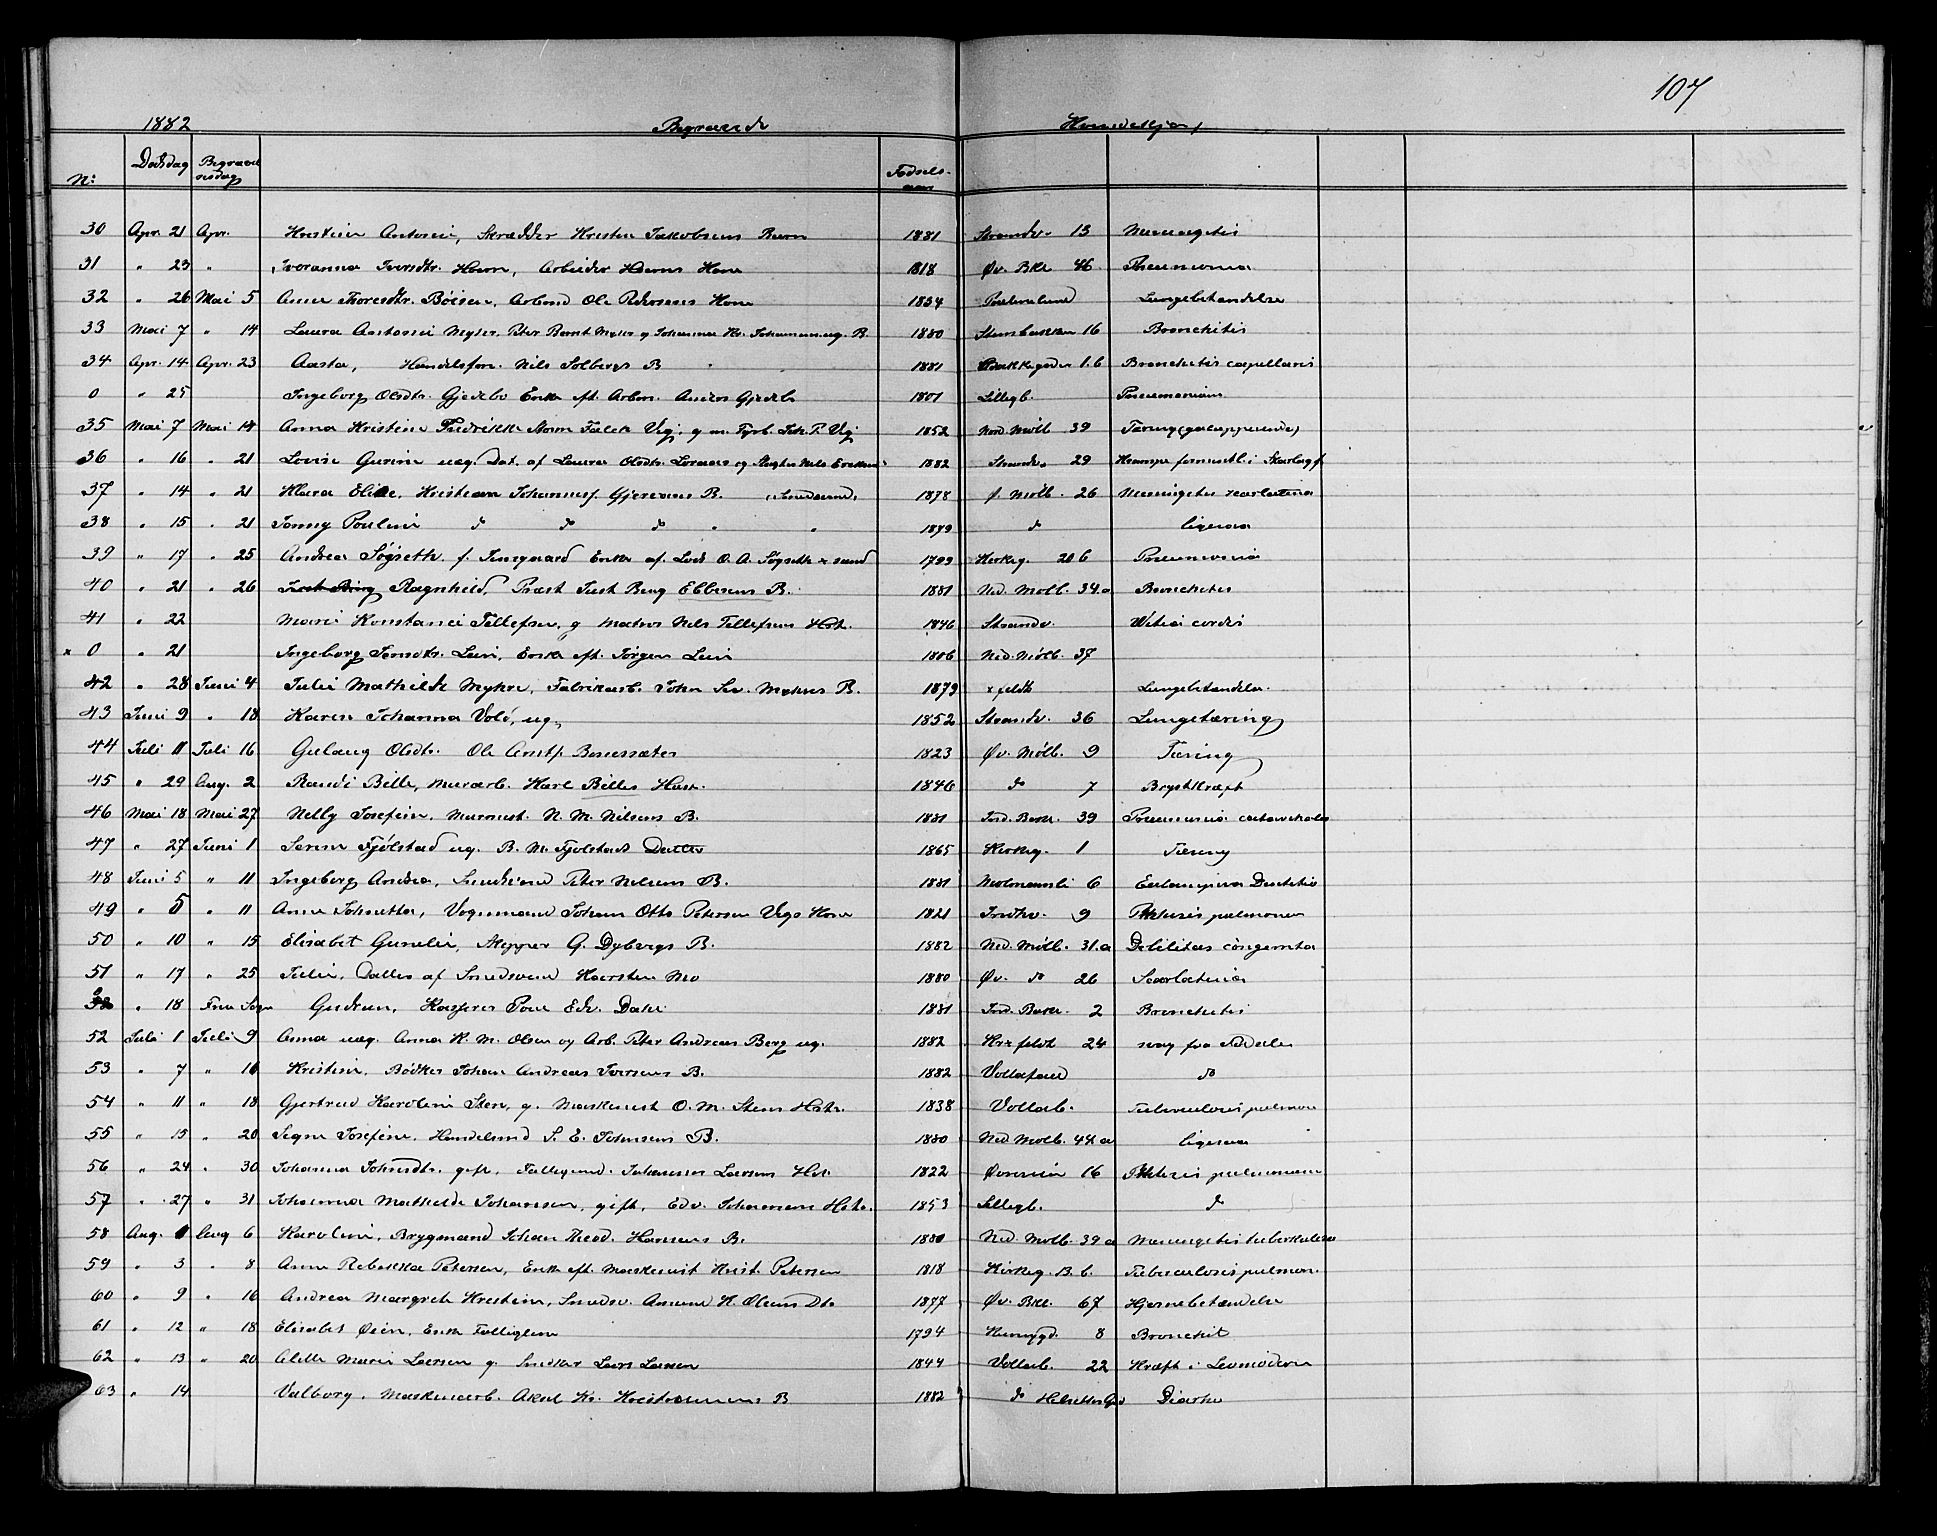 107
1882 Begravede Kvindekjøn
No: Dødsdag Begravelsesdag Fødselsaar
30 Apr. 21 Apr. Kristine Antonie, Skrædder Kristen Jakobsens Barn 1881 Strandv. 13 Meningitis
31 " 23 " Iveranna Iversdtr. Havn, Arbeider Havns Kone 1818 Øv. Bkl. 46 Pneumonia
32 " 26 Mai 5 Anne Thoresdtr. Böisen, Arbmd Ole Pedersens Kone 1834 Lungebetændelse
33 Mai 7 " 14 Laura Antonie Myhr, Peter Bernt Myhr og Johanna Johannsen ug. B. 1880 Stensbakken 16 Bronchitis
34 Apr. 14 Apr. 23 Aasta, Handelsfm. Nils Solbergs B 1881 Bakkegaden 1.b Bronchitis capillaris
0 " 25 Ingeborg Olsdtr. Gjedebo Enke eft. Arbm. Anders Gjedebo 1801 Lillegb. Pneumonien
35 Mai 7 Mai 14 Anna Kristine Fredrikke Storm Falck Vig, g m. Fyrb. Joh. P. Vig 1852 Ned. Møllb 39 Tæring (galopperende)
36 " 16 " 21 Lovise Gurine uæg. Dat. af Laura Olsdtr. Loraas og Slagter Nils Eriksen 1882 Strandv. 29 Krampe Skarlagf
37 " 14 " 21 Klara Elise, Kristian Johannesf. Gjervans B. Smedsvend. 1878 Møllb. 26 Meningitis scarlatina
38 " 15 " 21 Jonny Pouline do do do " " 1879 do ligesaa
39 " 17 " 25 Andrea Søgseth f. Enke af. Lods O. A. Søgseth 1799 Kirkeg. 20 b Pneumonia
40 " 21 " 26 Just Bing Ragnhild, Præst Just Bing Ebbesens B. 1881 Ned. Mollb. 34.a Bronchitis
41 " 22 Marie Konstanse Tellefsen, g Matros Nels Tellefsens Hst. 1846 Strandv. Vitia cordis
x 0 " 21 Ingeborg Jonsdtr. Lein, Enke eft. Jørgen Lein 1806 Ned. Mølb. 37
42 " 28 Juni 4 Julie Mathilde Myhre, Fabrikarb. John Sev. Myhres B. 1879 x feldt Lungebetændelse.
43 Juni 9 " 18 Karen Johanna Volö, ug. 1852 Strandv. 36 Lungetæring
44 Juli 11 Juli 16 Gulaug Olsdtr. Ole Arntf. 1823 Øv. Mølb. 9 Tæring
45 " 29 Aug. 2 Randi Bille, Murarb. Karl Billes Hust. 1846 do 7 Brystkræft
46 Mai 18 Mai 27 Nelly Josefine, Murmest. N. M. Nilsens B. 1881 Ind. Bakl. 39 Pneumonia catarrhalis
47 " 27 Juni 1 Serine Fjölstad ug. B. M. Fjolstads Datter 1865 Kirkeg. 1 Tæring
48 Juni 5 " 11 Ingeborg Andrea, Smedsvend Peter Nilsens B. 1881 Nedmansli 6 Eclampsia Dentitio
49 " 5 " 11 Anne Johnetta, Vognmand Johan Otto Petersen Vigs Kone 1821 Indhv. 9 Phthisis pulmonum
50 " 10 " 15 Elisabet Gunelie, Skipper G. Dybergs B. 1882 Ned. Mølb. 31.a Debilitas congenita
51 " 17 " 25 Julie, Datter af Smedsvend Karsten Mo 1880 Øv. do 26 Scarlatina
0 " 18 Frue Sogn Gudrun, Kasserer Edv. Dahl 1881 Ind. Bakl. 2 Bronchitis
52 Juli 1 Juli 9 Anna uæg. Anna K. M. Olsen og Arb. Peter Andreas Berg ug. 1882 Kr x feldt 24 svag fra Fødselen
53 " 7 " 16 Kristine, Bødker Johan Andreas Iversens B. 1882 do
54 " 11 " 18 Gjertrud Karoline Sten, g. Maskinist O. M. Stens Hstr. 1838 Vollab. Tuberculosis pulmon
55 " 15 " 20 Signe Josefine, Handelsmd S. E. Johnsens B. 1880 Ned Mollb. 44.a ligesaa
56 " 24 " 30 Johanna Johnsdtr. gift. Johannes Larsens Hst. 1822 16 Phthisis pulmonum
57 " 27 " 31 Johanna Mathilde Johansen, gift, Edv. Johansens Hstr. 1853 Lillegb. do
58 Aug. 1 Aug 6 Karoline, Brygmand Johan Theod. Hansens B. 1880 Ned. Mollb. 39 a Meningitis tuberkulosa
59 " 3 " 8 Anne Rebekka Petersen, Enke eft. Maskinist Krist. Petersen 1818 Kirkeg. 13. b. Tuberculosis pulmon.
60 " 9 " 16 Andrea Margrete Kristine, Smedsv. Amund H. Olsens Dtr 1877 Øv. Bkl. 67 Hjernebetændelse
61 " 12 " 18 Elisabet Øien, Enke Fattiglem 1794 8 Bronchit
62 " 13 " 20 Alette Marie Larsen g. Snedker Lars Larsen 1844 Vollab. 22 Kræft i Livmoderen
63 " 14 Valborg, Maskinarb. Aksel Kr. Kristoffersens B 1882 do Diarhe